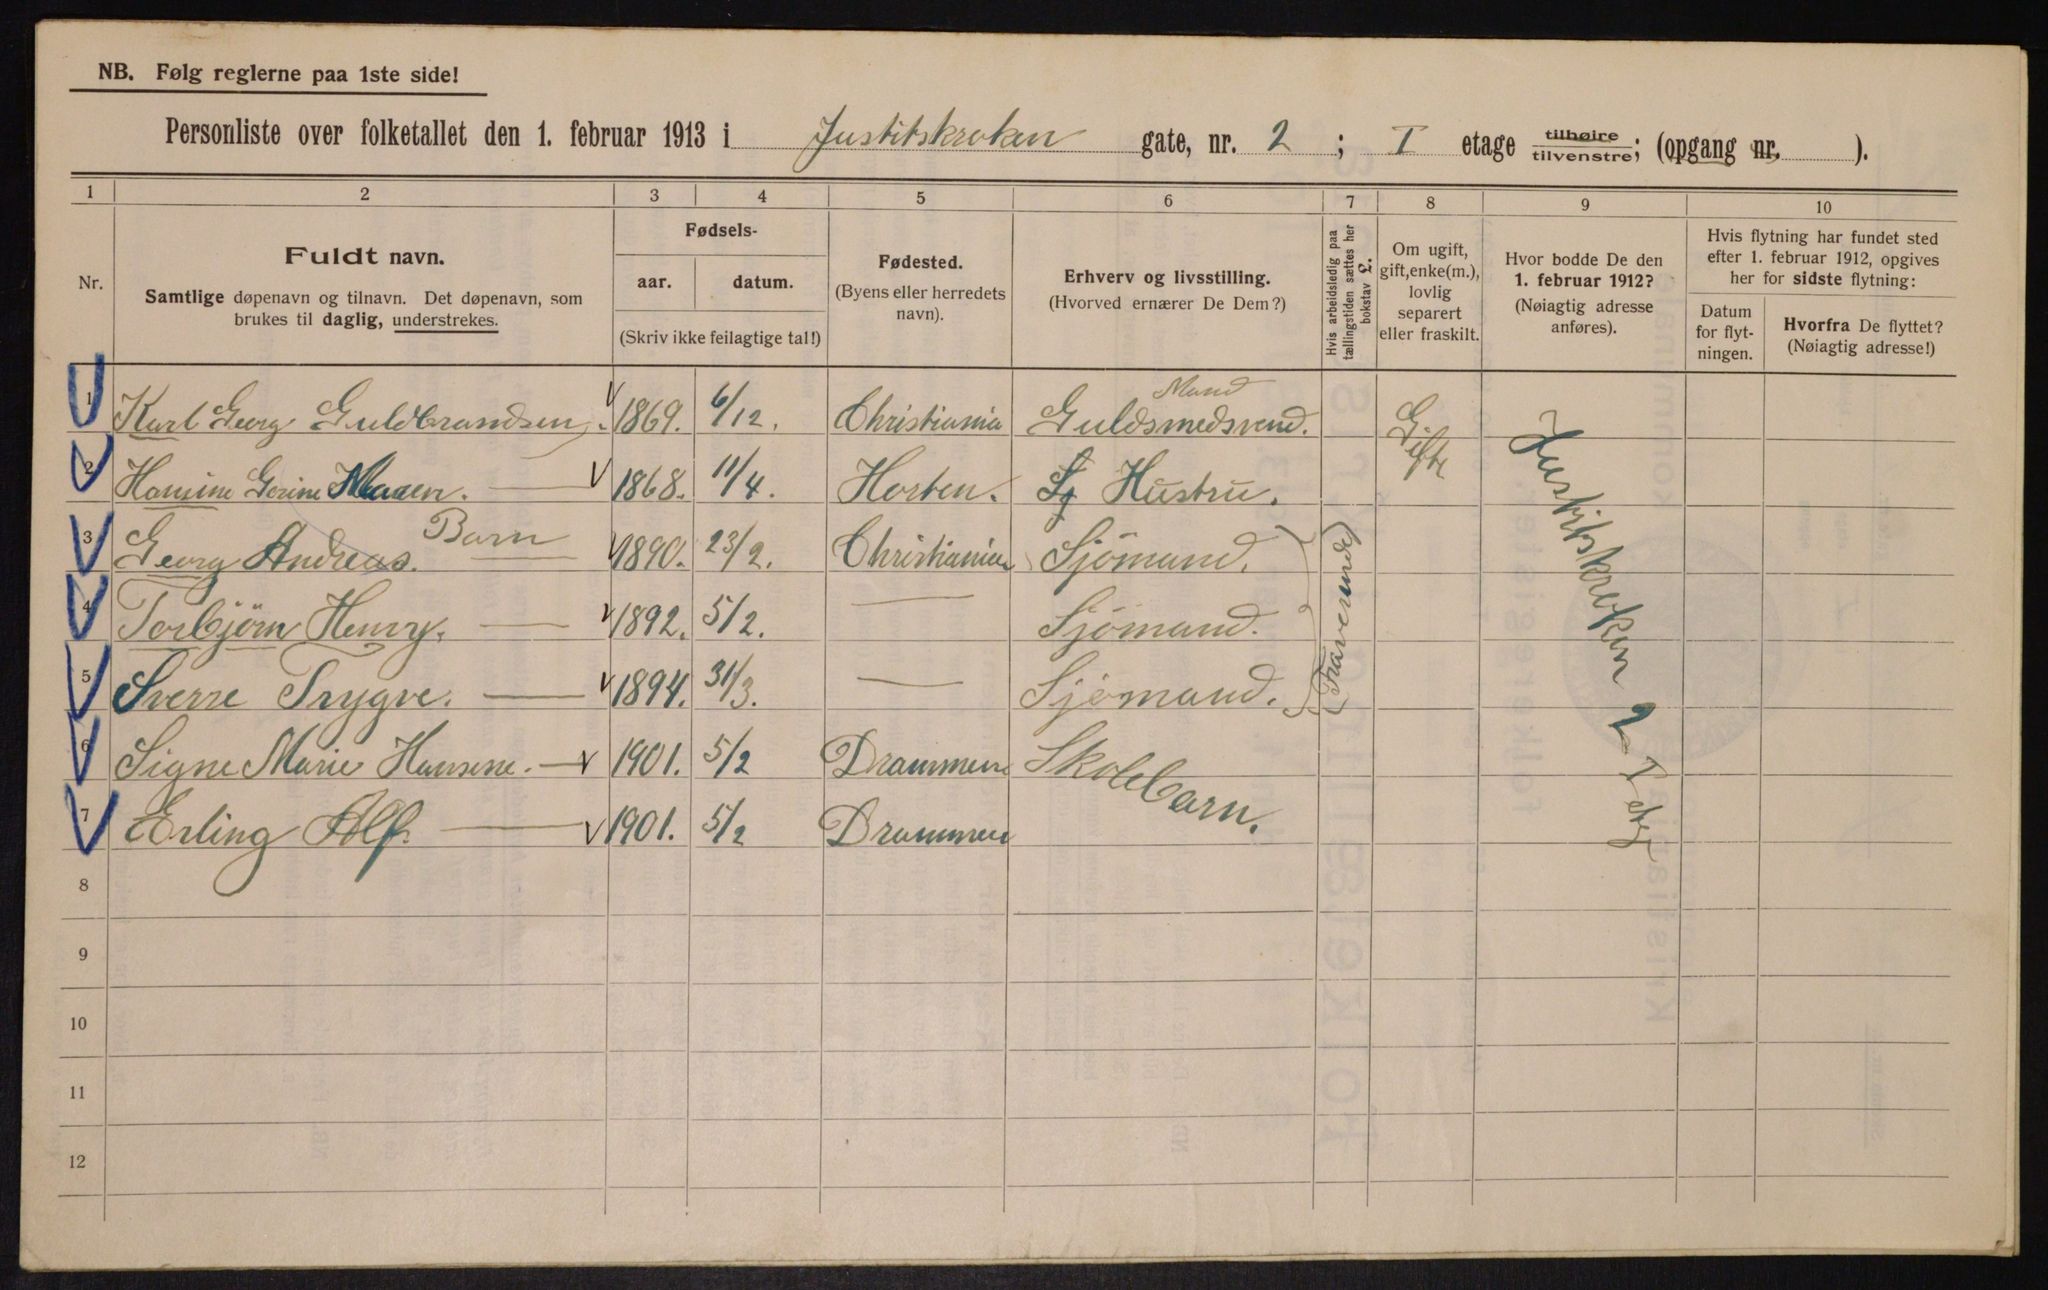 NB. Følg reglerne paa 1ste side!
Personliste over folketallet den 1. februar 1913 i Justitskroken gate, nr. 2 ; I etage tilhøire tilvenstre; (opgang nr. ).
1 2 3 4 5 6 7 8 9 10
Nr.
Fuldt navn.
Samtlige døpenavn og tilnavn. Det døpenavn, som
brukes til daglig, understrekes.
Fødsels-
aar. datum.
(Skriv ikke feilagtige tal!)
Fødested.
(Byens eller herredets
navn).
Erhverv og livsstilling.
(Hvorved ernærer De Dem?)
Hvis arbeidsledig paa
tællingstiden sættes her
bokstav L.
Om ugift,
gift, enke(m.),
lovlig
separert
eller fraskilt.
Hvor bodde De den
1. februar 1912?
(Nøiagtig adresse
anføres).
Hvis flytning har fundet sted
efter 1. februar 1912, opgives
her for sidste flytning:
Datum
for flyt-
ningen.
Hvorfra De flyttet?
(Nøiagtig adresse!)
Mand
1 Karl Georg Guldbrandsen. 1869. 6/12. Christiania Guldsmedsvend. Gifte Justitskroken 2 I etg
2 Hansine Gerine — 1868. 11/4. Horten. Hustru.
Barn
3 Georg Andreas. — 1890. 23/2. Christiania Sjömand. (Fraværende)
4 Torbjörn Henry. — 1892. 5/2. — Sjömand.
5 Sverre Trygve. — 1894. 31/3. — Sjömand.
6 Signe Marie Hansine. — 1901. 5/2 Drammen Skolebarn.
7 Erling Alf. — 1901. 5/2 Drammen
8
9
10
11
12